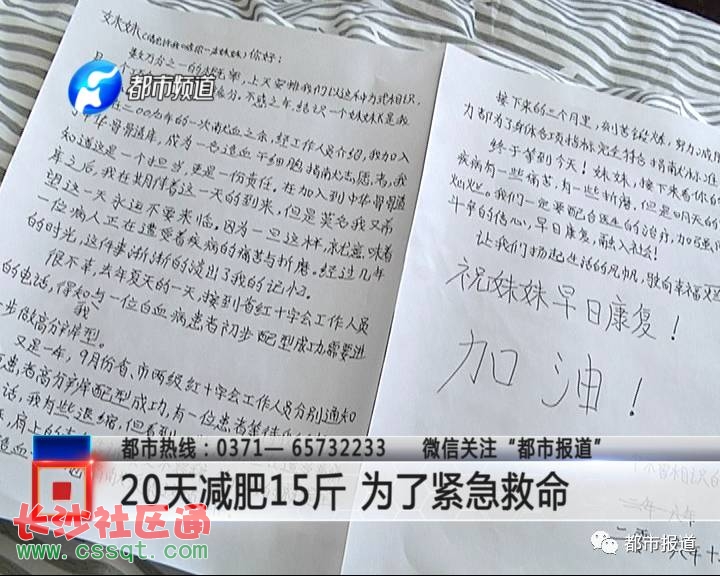 妹妹(请允许我喊你一声妹妹)你好:
基数万分之一的相见率,上天安排我们以这种方式相识,
都市频道
缘分。不惑之年,结识一个妹妹是我
在二00六年的一次献血之余,经工作人员介绍,我加入
中华骨髓库,成为一名造血干细胞捐献志愿者。我
知道这是一个担当,更是一份责任。在加入到中华骨髓
库之后,我在期待着这一天的到来,但是莫名我又希
望这一天永远不要来临。因为一旦这样,就意味着
一位病人正在遭受着疾病的痛苦与折磨。经过几年
的时光,这件事渐渐的淡出了我的记忆。
很不幸,去年夏天的一天,接到省红十字会工作人员
的电话,得知我与一位白血病患者初步配型成功,需要进
一步做高分辨型。
又是一年,9月份省、市两级红十字会工作人员分别通知
患者高分辨配型成功,有一位患者
话,我有些退缩,但看到
接下来的三个月里,刻苦锻炼,努力减肥
力都为了身体各项指标完全符合捐献标准
终于等到今天!妹妹,接下来看你的
疾病有一些痛苦,有一些折磨,但是明天的
灿烂。我们一定要配合医生的治疗,加强
斗争的信心,早日康复,融入社会!
让我们扬起生活的风帆,驶向幸福
祝妹妹早日康复!
加油!
都市热线:0371— 65732233 微信关注“都市报道”
20天减肥15斤 为了紧急救命
长沙社区通
www.cssqt.com
都市报道